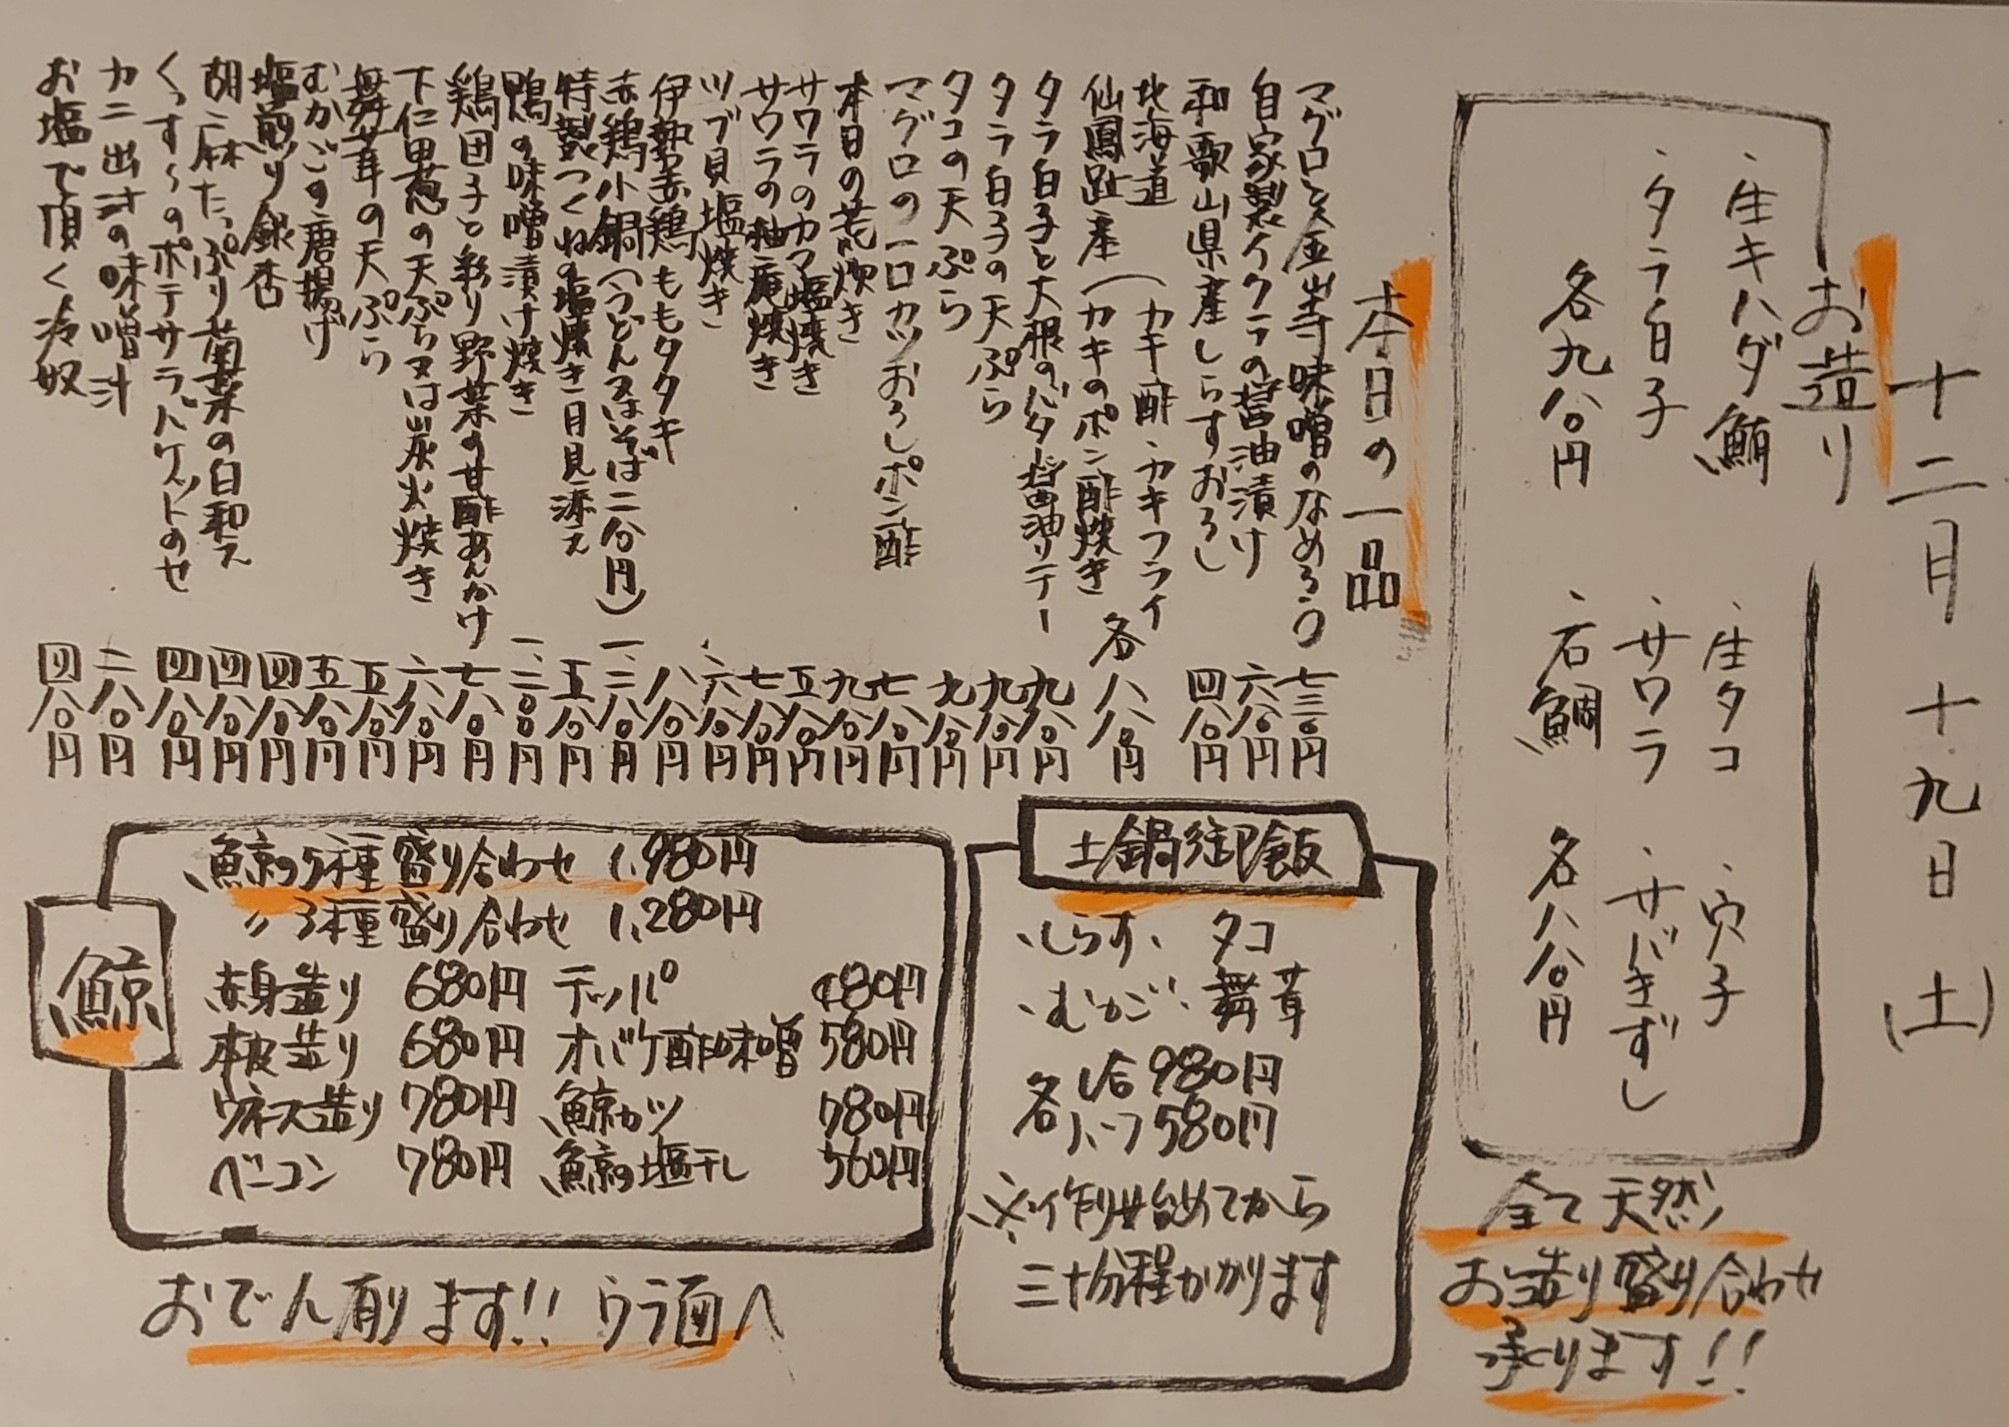 十二月十九日(土)
お造り
・生キハダ鮪
・タラ白子
各九八〇円
・生タコ
・穴子
・サワラ
・サバきずし
・石鯛
各八八〇円
全て天然
お造り盛り合わせ
承ります!!
本日の一品
マグロと金山寺味噌のなめろう 七三〇円
自家製イクラの醤油漬け 六八〇円
和歌山県産しらすおろし 四八〇円
北海道
仙鳳趾産
(カキ酢・カキフライ
(カキのポン酢焼き
各八八〇円
タラ白子と大根のバター醤油ソテー 九八〇円
タラ白子の天ぷら 九八〇円
タコの天ぷら 九八〇円
マグロの一口カツおろしポン酢 七八〇円
本日の荒炊き 九八〇円
サワラのカマ塩焼き 五八〇円
サワラの柚庵焼き 七八〇円
ツブ貝塩焼き 六八〇円
伊勢赤鶏ももタタキ 八八〇円
赤鶏小鍋(うどん又はそば二八〇円) 一、二八〇円
特製つくねの塩焼き 月見添え 五八〇円
鴨の味噌漬け焼き 一、二〇〇円
鶏団子と彩り野菜の甘酢あんかけ 七八〇円
下仁田葱の天ぷら又は炭火焼き 六八〇円
舞茸の天ぷら 五八〇円
むかご唐揚げ 五八〇円
塩煎り銀杏 四八〇円
胡麻たっぷり菊菜の白和え 四八〇円
くっす〜のポテサラバケットのせ 四八〇円
カニ出汁の味噌汁 二八〇円
お塩で頂く冷奴 四八〇円
土鍋御飯
・しらす・タコ
・むかご・舞茸
各1合980円
ハーフ580円
※作り始めてから
三十分程かかります
鯨
鯨の5種盛り合わせ 1,980円
〃 3種盛り合わせ 1,280円
赤身造り 680円 テッパ 480円
本皮造り 680円 オバケ酢味噌 580円
ウネス造り 780円 鯨カツ 780円
ベーコン 780円 鯨の塩干し 560円
おでん有ります!! ウラ面へ